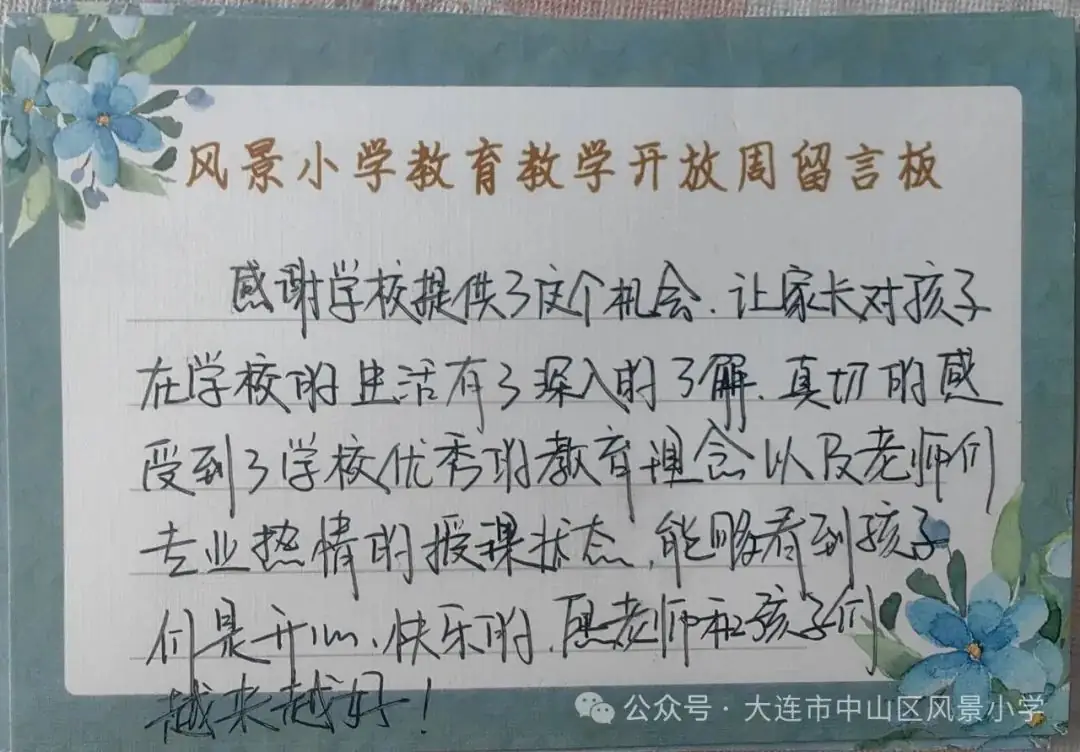 风景小学教育教学开放周留言板
感谢学校提供了这个机会、让家长对孩子
在学校的生活有了深入的了解、真切的感
受到了学校优秀的教育理念以及老师们
专业热情的授课状态,能够看到孩子
们是开心、快乐的,愿老师和孩子们
越来越好!
公众号·大连市中山区风景小学